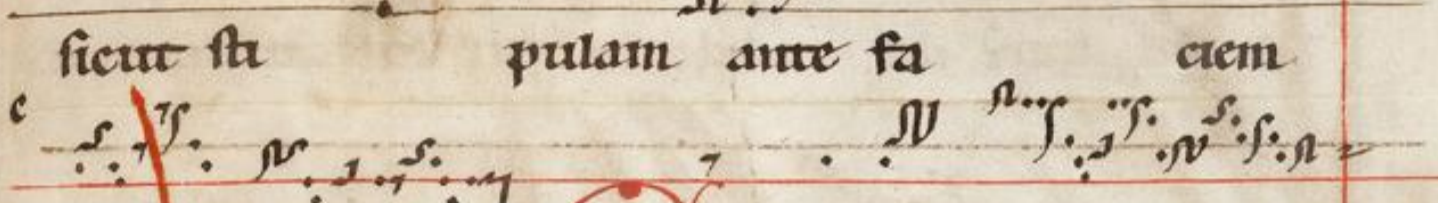 sicut sti pulam ante fa ciem
c